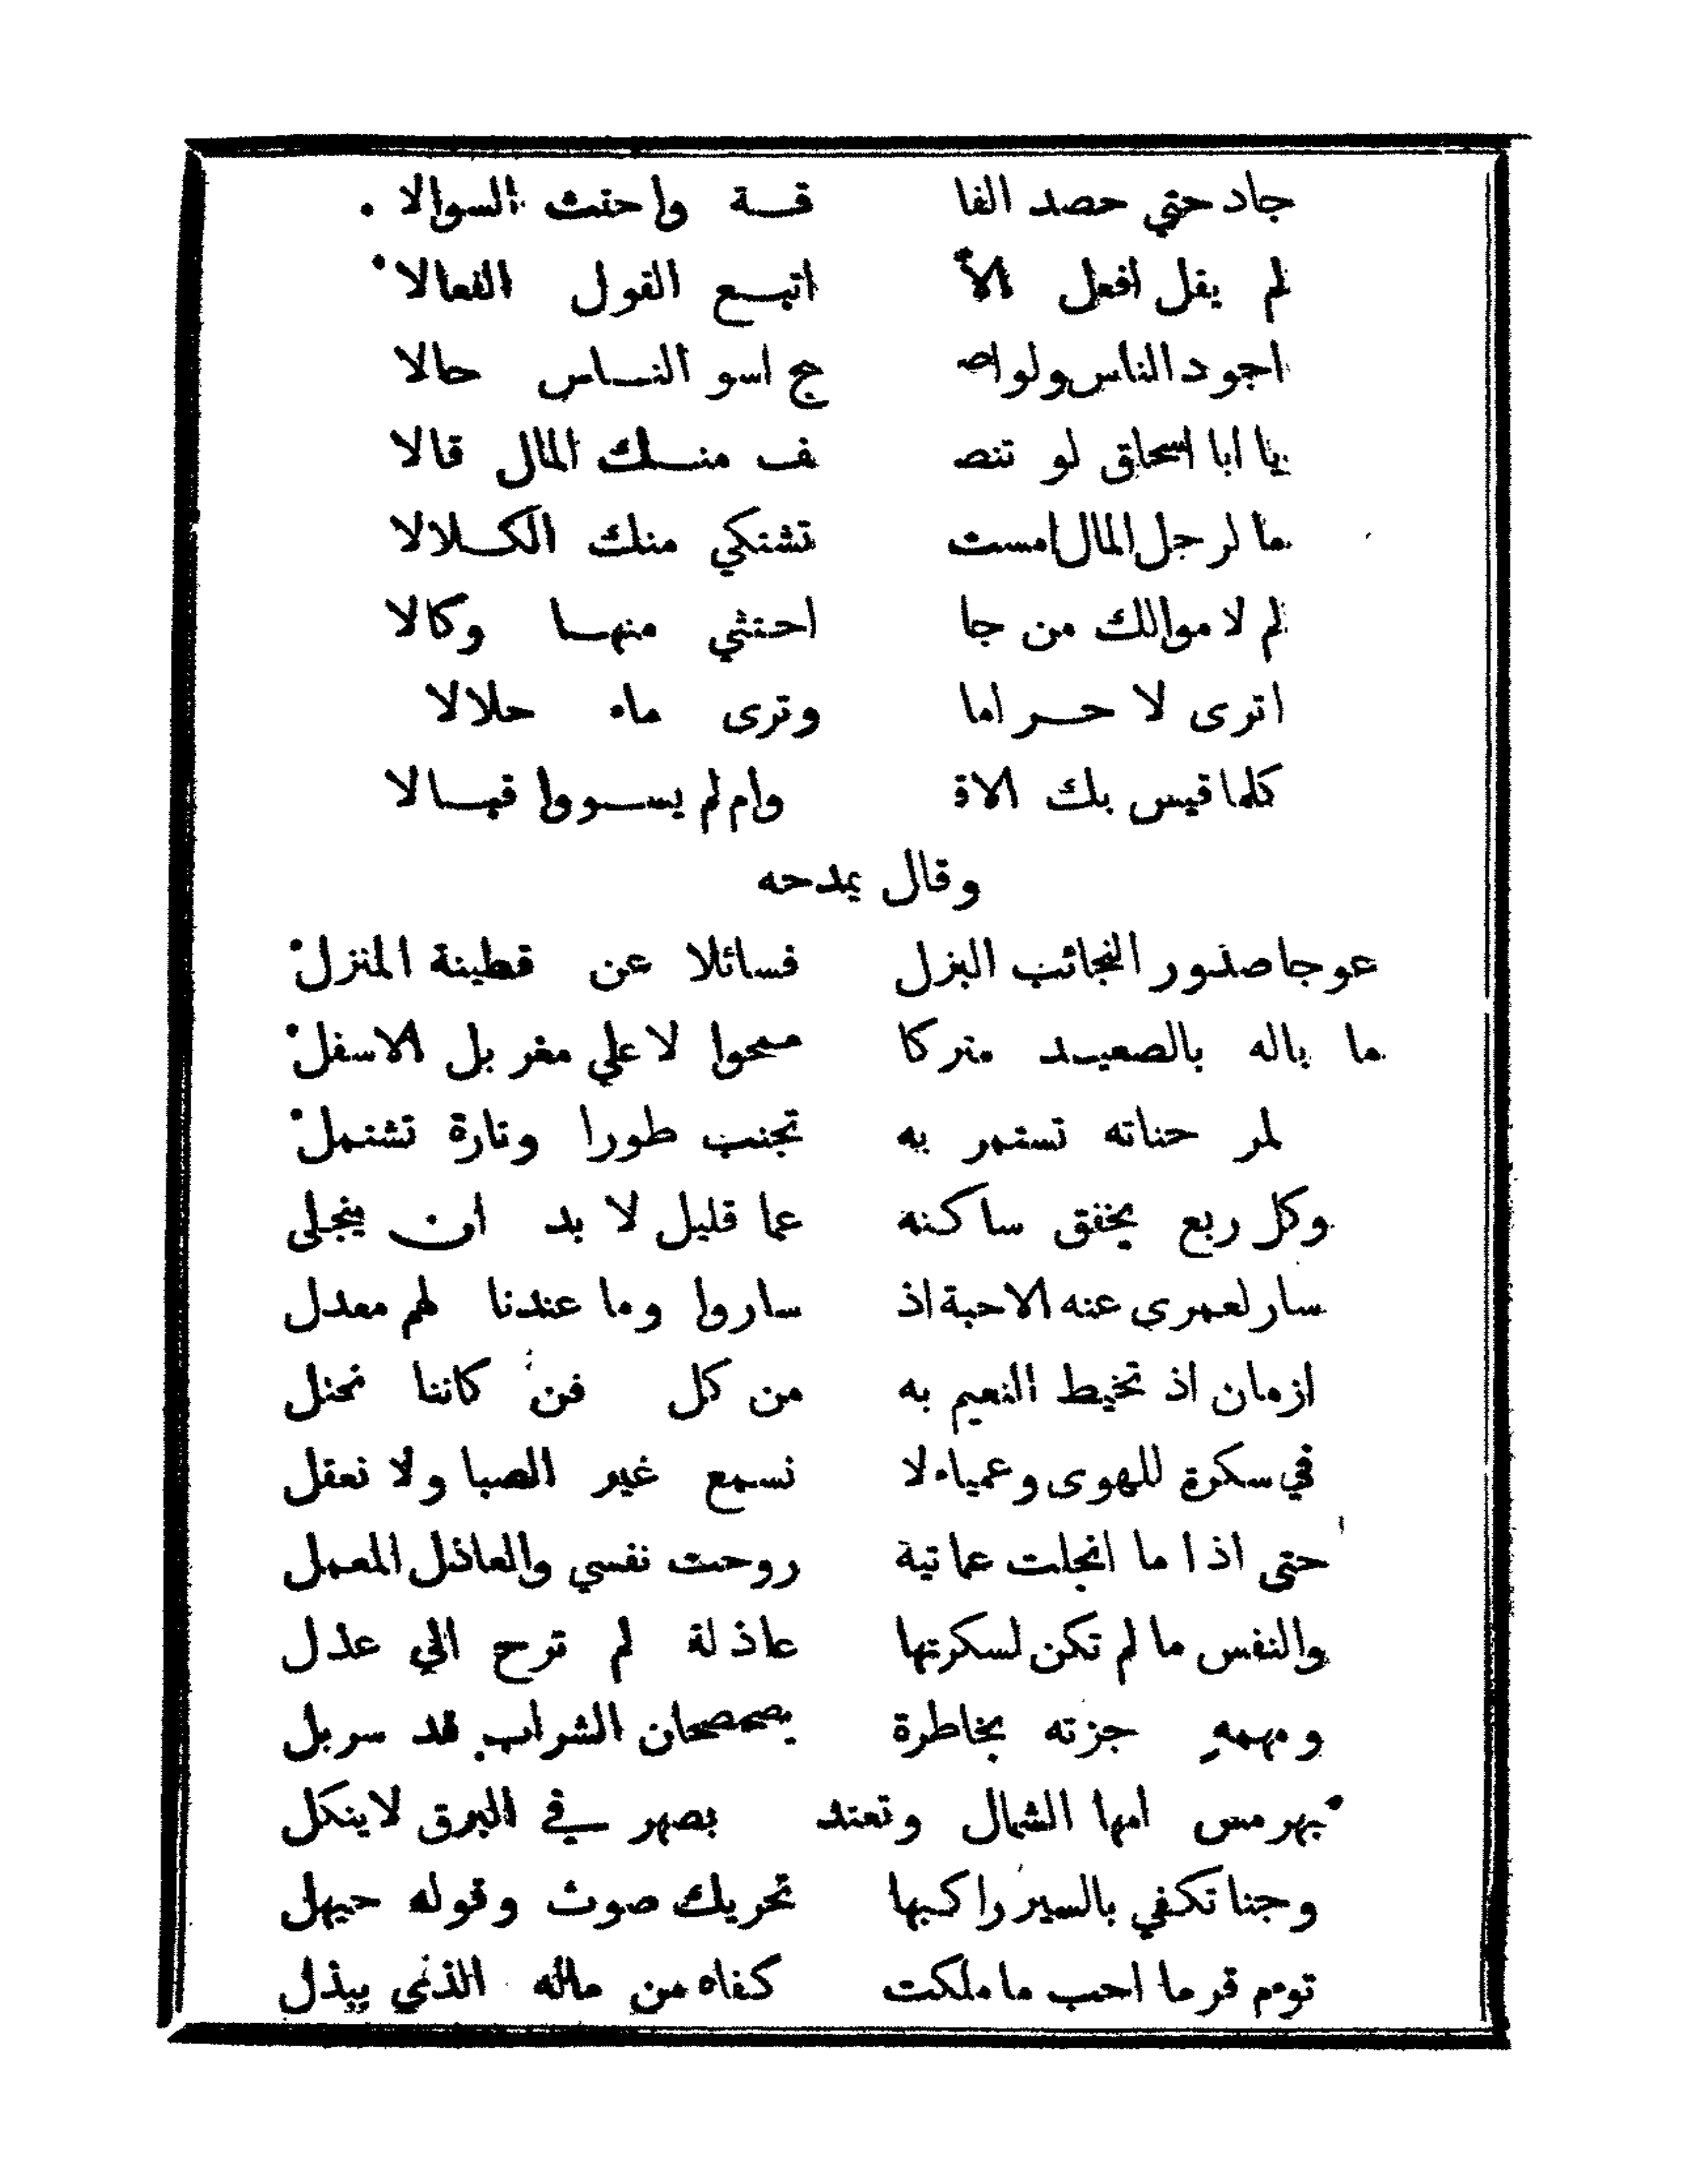 جاد حتي حصد الفا قـــة واحتث السوالا
لم يقل افعل الا اتبـــع القول الفعالا
اجود الناس ولو اصـ ـبح اسو النـــاس حالا
يا ابا اسحاق لو تنصـ ـف منـــك المال قالا
ما لرجل المال امست تشتكي منك الكـــلالا
لم لا موالك من جا احتثي منهـــا وكالا
اترى لا حـــراما وترى ماه حلالا
كلما قيس بك الاقـ وام لم يســـووا قبـــالا
وقال يمدحه
عوجا صدور النجائب البزل فسائلا عن قطينة المنزل
ما باله بالصعيـــد متركا مسحوا لا علي مغر بل الاسفل
لمر حناته تستمر به تجنب طورا وتارة تشتمل
وكل ربع يخفق ساكنه عما قليل لا بد ان ينجلي
سار لعمري عنه الاحبة اذ ساروا وما عندنا لهم معدل
ازمان اذ تخيط النعيم به من كل فن كاننا نحنل
في سكرة للهوى وعمياء لا نسمع غير الصبا ولا نعقل
حتى اذا ما انجلت عماتية روحت نفسي والعاذل المعمل
والنفس ما لم تكن لسكرتها عاذلة لم ترح الي عذل
ومهمه جزته بخاطرة يصحصحان الشراب قد سربل
بهرمس امها الشمال وتعتد بصهر في البرق لا ينكل
وجنا تكفي بالسير راكبها تحريك صوت وقوله حيهل
توم قرما احب ما ملكت كفاه من ماله الذي يبذل